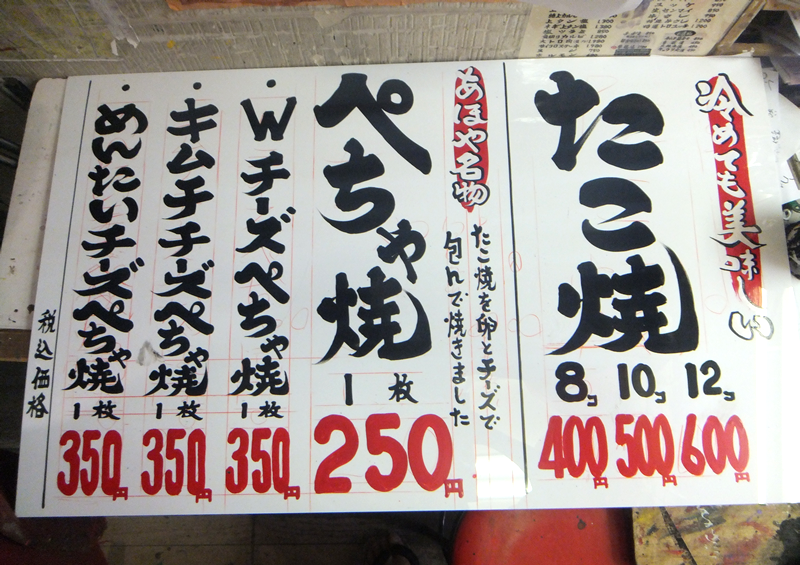 冷めても美味しい
たこ焼
8コ 10コ 12コ
400円 500円 600円
あほや名物
たこ焼を卵とチーズで
包んで焼きました
ぺちゃ焼
1枚
250円
・Wチーズぺちゃ焼
1枚
350円
・キムチチーズぺちゃ焼
1枚
350円
・めんたいチーズぺちゃ焼
1枚
350円
税込価格